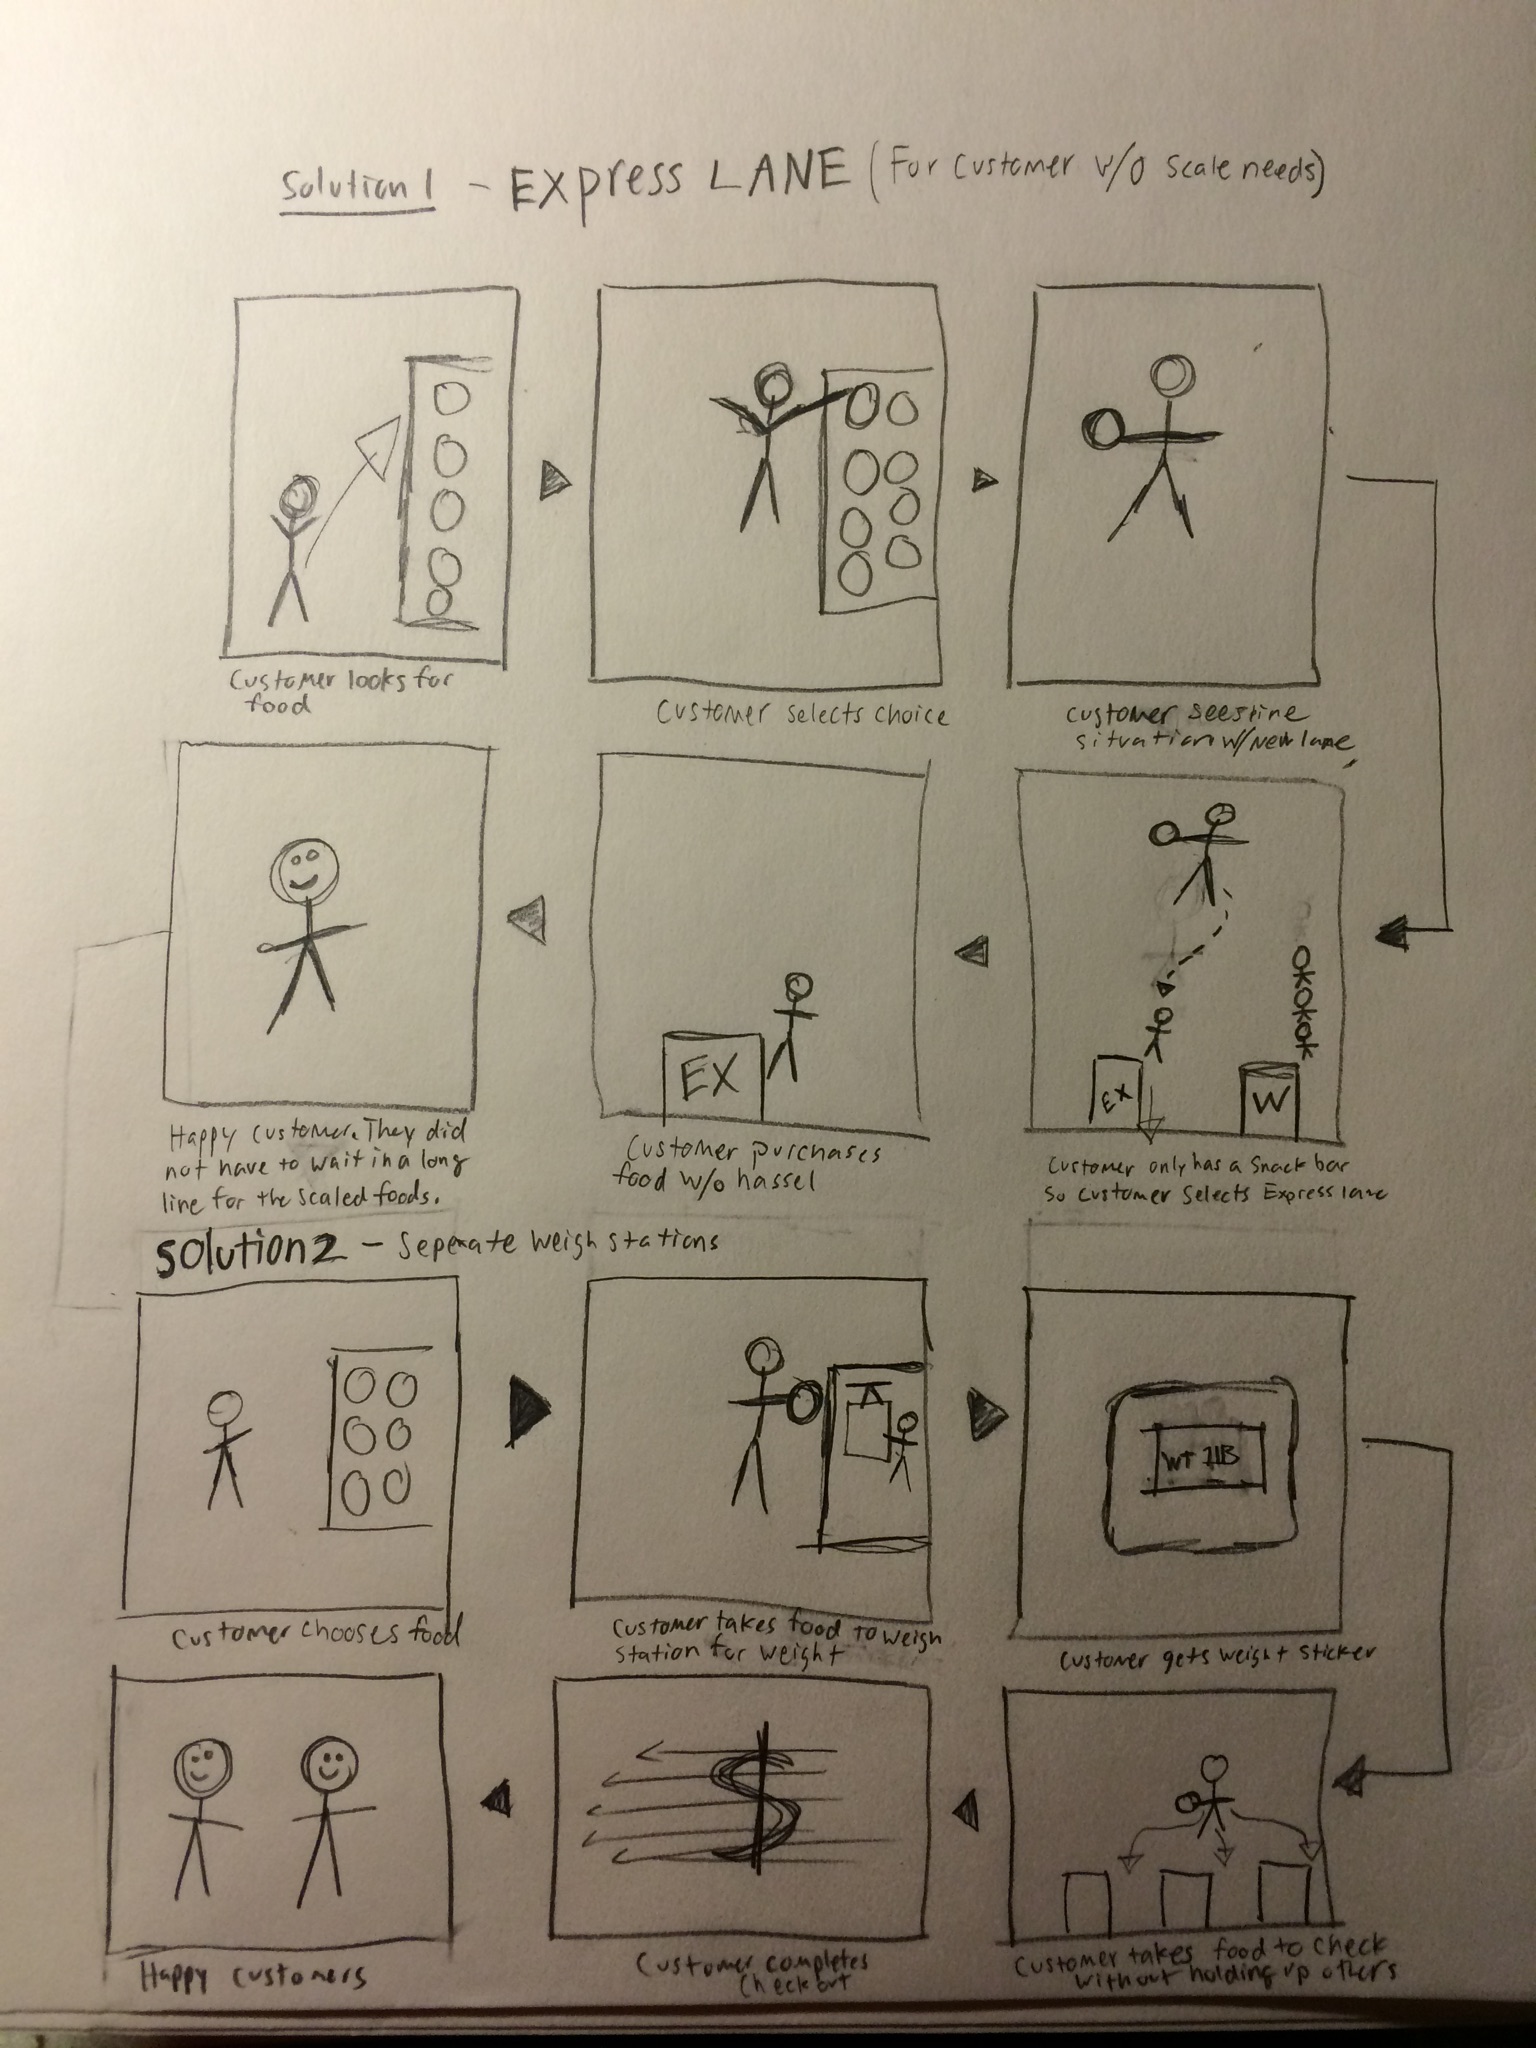 Solution 1 - EXpress LANE (For Customer w/o scale needs)
Customer looks for
food
Customer selects choice
Customer sees line
situation w/ New lane
EX
W
Customer only has a snack bar
so customer selects Express lane
EX
Customer purchases
food w/o hassel
Happy customer. They did
not have to wait in a long
line for the scaled foods.
Solution 2 - Seperate weigh stations
Customer chooses food
Customer takes food to weigh
station for weight
Wt 1lB
Customer gets weight sticker
Customer takes food to check
without holding up others
$
Customer completes
checkout
Happy customers